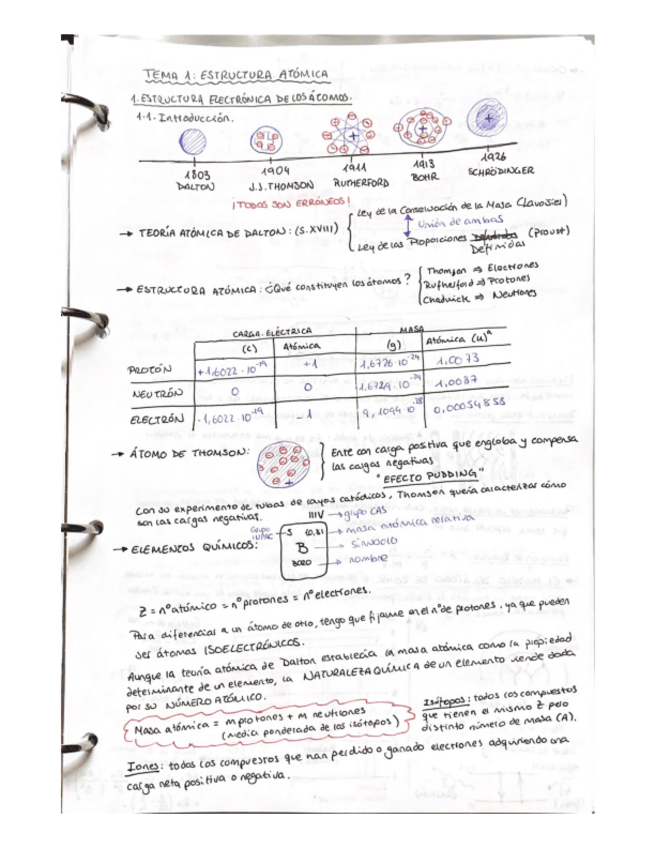 TEMA 1: ESTRUCTURA ATÓMICA
1. ESTRUCTURA ELECTRÓNICA DE LOS ÁTOMOS.
1.1. Introducción.
1803 1904 1911 1913 1926
DALTON J.J. THOMSON RUTHERFORD BOHR SCHRÖDINGER
¡TODOS SON ERRÓNEOS!
→ TEORÍA ATÓMICA DE DALTON: (S. XVIII)
Ley de la Conservación de la Masa (Lavoisier)
Unión de ambas
Ley de las Proporciones (Proust)
Definidas
→ ESTRUCTURA ATÓMICA: ¿Qué constituyen los átomos?
Thomson ⇒ Electrones
Rutherford ⇒ Protones
Chadwick ⇒ Neutrones
CARGA ELÉCTRICA MASA
(C) Atómica (g) Atómica (u)
PROTÓN +1,6022·10⁻¹⁹ +1 1,6726·10⁻²⁴ 1,0073
NEUTRÓN 0 0 1,6749·10⁻²⁴ 1,0087
ELECTRÓN -1,6022·10⁻¹⁹ -1 9,1094·10⁻²⁸ 0,00054858
→ ÁTOMO DE THOMSON:
Ente con carga positiva que engloba y compensa
las cargas negativas
"EFECTO PUDDING"
Con su experimento de tubos de rayos catódicos, Thomson quería caracterizar cómo
son las cargas negativas.
IIIV → grupo CAS
Grupo IUPAC
5 10,81 → masa atómica relativa
→ ELEMENTOS QUÍMICOS: B → símbolo
BORO → nombre
Z = nº atómico = nº protones = nº electrones.
Para diferenciar a un átomo de otro, tengo que fijarme en el nº de protones, ya que pueden
ser átomos ISOELECTRÓNICOS.
Aunque la teoría atómica de Dalton establecía la masa atómica como la propiedad
determinante de un elemento, la NATURALEZA QUÍMICA de un elemento viene dada
por su NÚMERO ATÓMICO.
Masa atómica = m protones + m neutrones
(media ponderada de los isótopos)
Isótopos: todos los compuestos
que tienen el mismo Z pero
distinto número de masa (A).
Iones: todos los compuestos que han perdido o ganado electrones adquiriendo una
carga neta positiva o negativa.